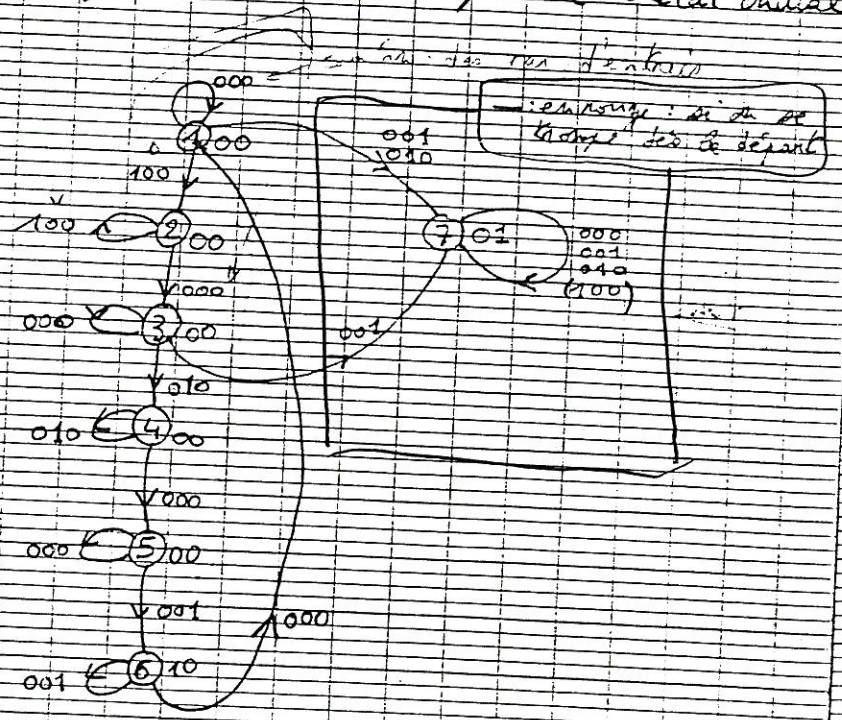 d'entrée
000
en rouge : si on se
trompe dès le départ
1 00
001
010
100
100
2 00
7 01
000
001
010
(100)
000
000
3 00
001
010
010
4 00
000
000
5 00
001
000
001
6 10